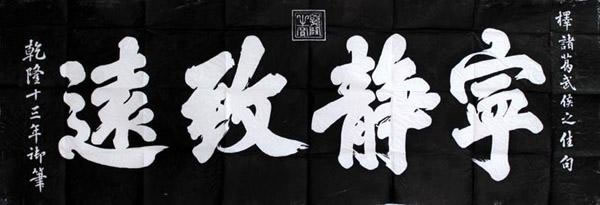 擇諸葛武侯之佳句
寧靜致遠
乾隆十三年御筆